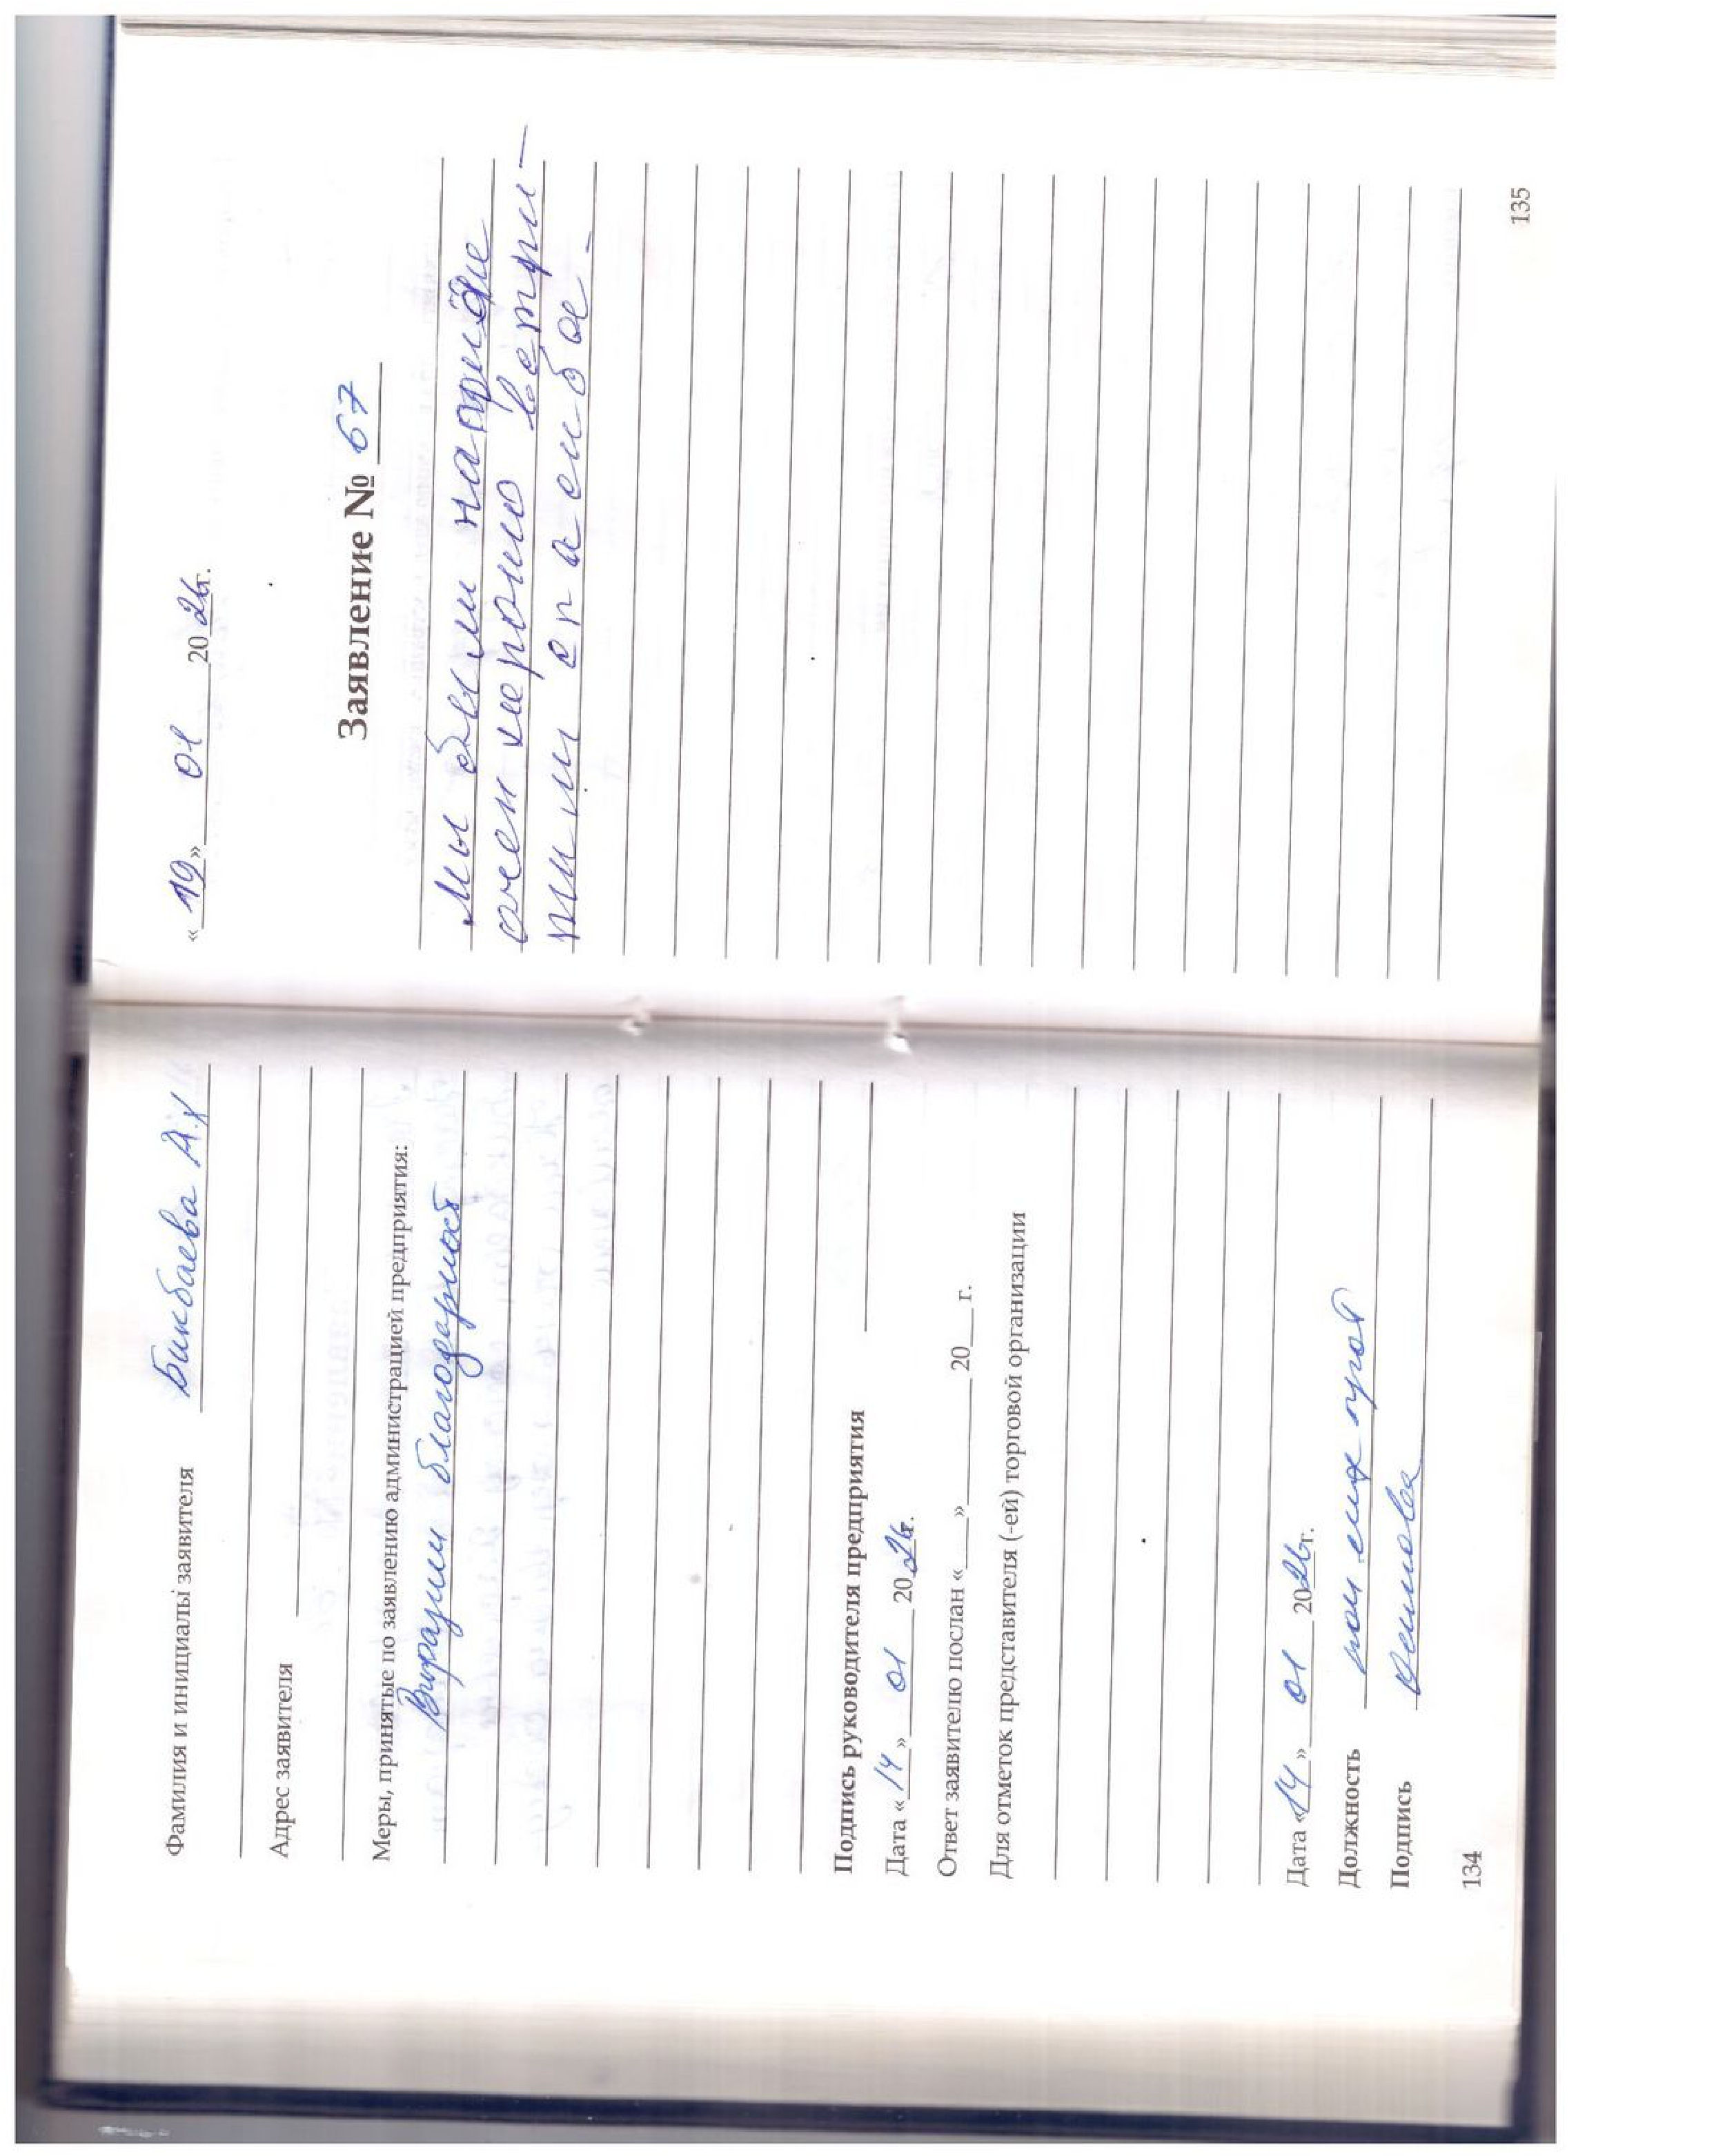 Фамилия и инициалы заявителя Бикбаева А.Х
Адрес заявителя
Меры, принятые по заявлению администрацией предприятия:
Выразили благодарност
Подпись руководителя предприятия
Дата «14» 01 2026г.
Ответ заявителю послан «___» ______ 20___г.
Для отметок представителя (-ей) торговой организации
Дата «14» 01 2026г.
Должность
Подпись
134
«19» 01 2026г.
Заявление № 67
Мы были на приёме
очен хорошо встри-
тили спасибо.
135